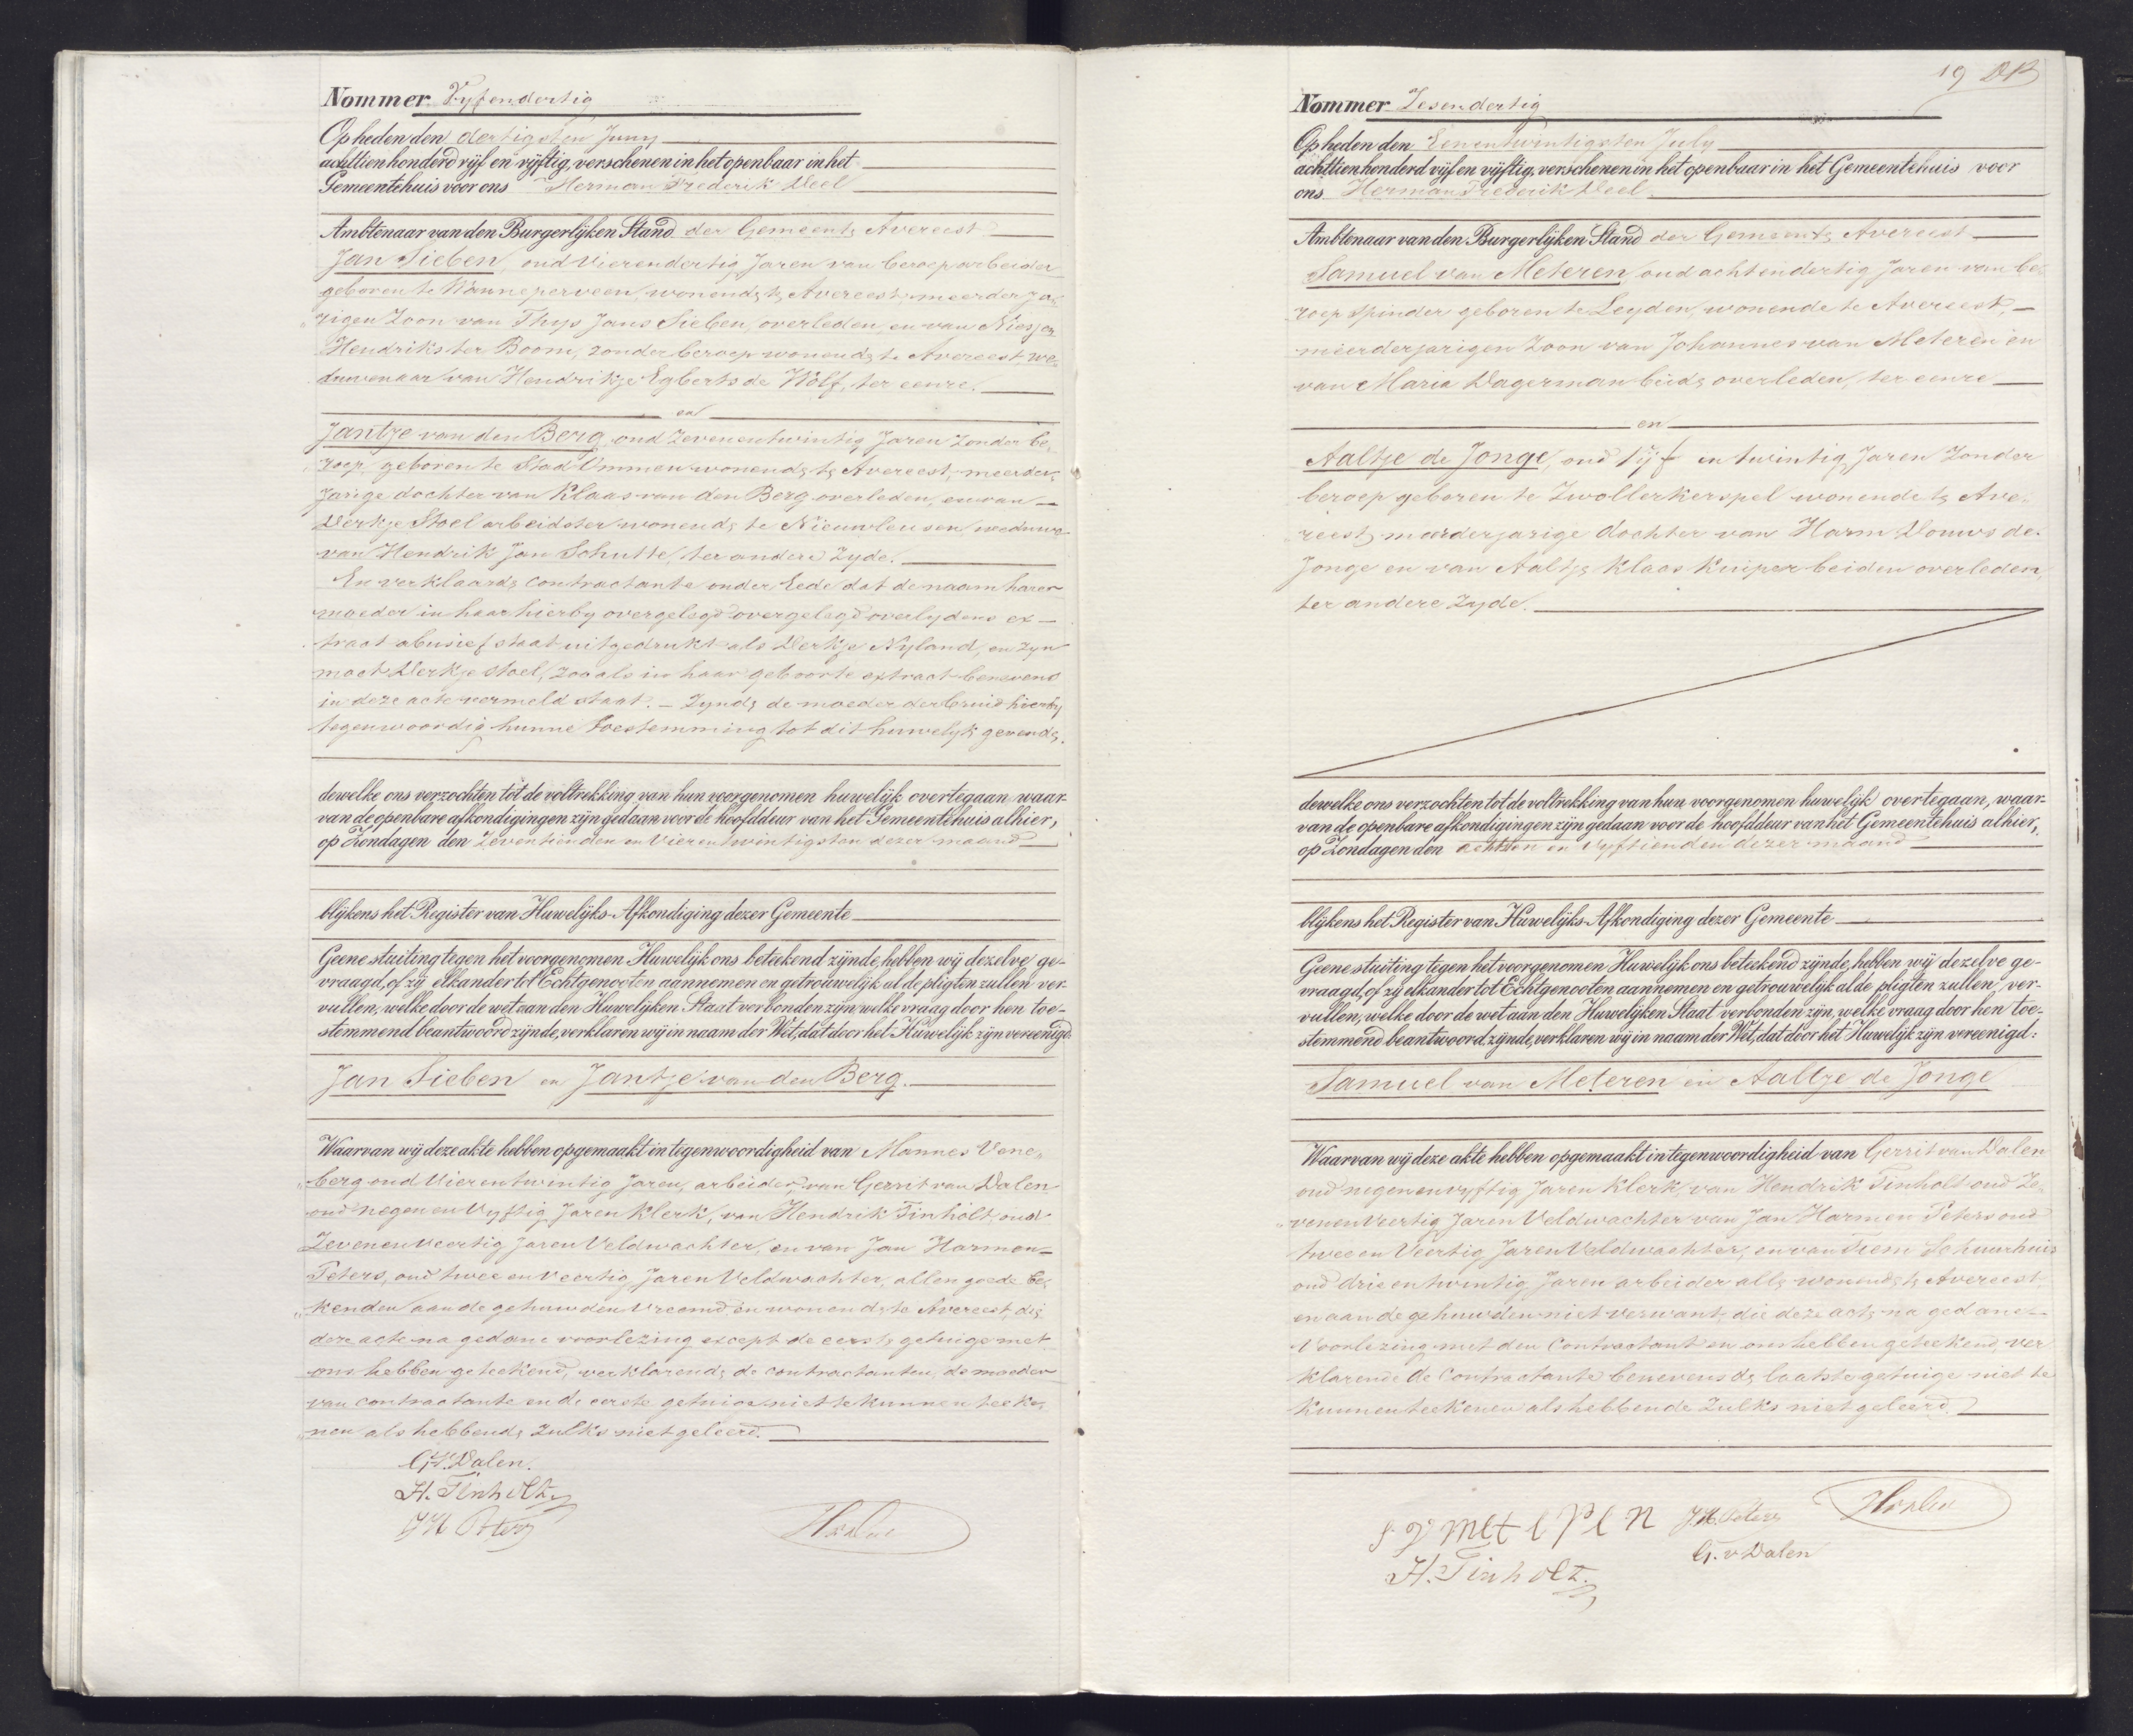 Nommer Vyfendertig
Op heden den dertigsten Juny
achttienhonderd vijf en vijftig, verschenen in het openbaar in het
Gemeentehuis voor ons Herman Frederik Deel
Ambtenaar van den Burgerlijken Stand der Gemeente Avereest
Jan Sieben, oud Vierendertig Jaren van beroep arbeider
geboren te Wanneperveen, wonende te Avereest, meerderja-
"rigen Zoon van Thys Jans Sieben, overleden, en van Niesjen
Hendriks ter Boom, zonder beroep wonende te Avereest, we-
duwenaar van Hendrikje Egberts de Wolf, ter eenre.
en
Jantje van den Berg, oud Zevenentwintig Jaren Zonder be-
"roep, geboren te Stad Ommen wonende te Avereest, meerder-
jarige dochter van Klaas van den Berg overleden, en van
Derkje Stoel arbeidster wonende te Nieuwleusen, weduwe
van Hendrik Jan Schutte, ter andere Zyde.
En verklaarde Contractante onder Eede dat de naam harer
moeder in haar hierby overgelegd overgelegd overlydens ex-
traat abusief staat uitgedrukt als Derkje Nyland, en Zyn
moet Derkje Stoel, zooals in haar geboorte extract benevens
in deze acte vermeld staat. - Zynde de moeder der bruid hierby
tegenwoordig hunne toestemming tot dit huwelyk gevende.
dewelke ons verzochten tot de voltrekking van hun voorgenomen huwelijk overtegaan waar-
van de openbare afkondigingen zijn gedaan voor de hoofddeur van het Gemeentehuis alhier,
op Zondagen den Zeventienden en Vierentwintigsten dezer maand
blijkens het Register van Huwelijks-Afkondiging dezer Gemeente
Geene stuiting tegen het voorgenomen Huwelijk ons beteekend zijnde, hebben wij dezelve ge-
vraagd, of zij elkander tot Echtgenooten aannemen en getrouwelijk al de pligten zullen ver-
vullen, welke door de wet aan den Huwelijken Staat verbonden zijn, welke vraag door hen toe-
stemmend beantwoord zijnde, verklaren wij in naam der Wet, dat door het Huwelijk zijn vereenigd:
Jan Sieben en Jantje van den Berg.
Waarvan wij deze akte hebben opgemaakt in tegenwoordigheid van Mannes Vene-
"berg oud Vierentwintig Jaren, arbeider, van Gerrit van Dalen
oud negen en Vyftig Jaren Klerk, van Hendrik Tinholt oud
Zevenenveertig Jaren Veldwachter, en van Jan Harmen
Peters, oud twee en Veertig Jaren Veldwachter, allen goede be-
"kenden aan de gehuwden Vreemd en wonende te Avereest, die
deze acte na gedane voorlezing except de eerste getuige met
ons hebben geteekend, verklarende de contractanten, de moeder
van contractante en de eerste getuige niet te kunnen teeke-
"nen als hebbende zulks niet geleerd.
G. v. Dalen.
H. Tinholt
J H Peters
Nommer Zesendertig
19 DB
Op heden den Eenentwintigsten July
achttienhonderd vijf en vijftig, verschenen in het openbaar in het Gemeentehuis voor
ons Herman Frederik Deel
Ambtenaar van den Burgerlijken Stand der Gemeente Avereest
Samuel van Meteren, oud achtendertig Jaren van be-
roep Spinder geboren te Leyden, wonende te Avereest,
meerderjarigen Zoon van Johannes van Meteren en
van Maria Dagerman beide overleden, ter eenre
en
Aaltje de Jonge, oud Vyf en twintig Jaren Zonder
beroep geboren te Zwollerkerspel wonende te Ave-
"reest, meerderjarige dochter van Harm Douws de
Jonge en van Aaltje Klaas Kuiper beiden overleden,
ter andere Zyde.
dewelke ons verzochten tot de voltrekking van hun voorgenomen huwelijk overtegaan, waar-
van de openbare afkondigingen zijn gedaan voor de hoofddeur van het Gemeentehuis alhier,
op Zondagen den achtsten en Vyftienden dezer maand
blijkens het Register van Huwelijks-Afkondiging dezer Gemeente
Geene stuiting tegen het voorgenomen Huwelijk ons beteekend zijnde, hebben wij dezelve ge-
vraagd, of zij elkander tot Echtgenooten aannemen en getrouwelijk al de pligten zullen ver-
vullen, welke door de wet aan den Huwelijken Staat verbonden zijn, welke vraag door hen toe-
stemmend beantwoord zijnde, verklaren wij in naam der Wet, dat door het Huwelijk zijn vereenigd:
Samuel van Meteren en Aaltje de Jonge
Waarvan wij deze akte hebben opgemaakt in tegenwoordigheid van Gerrit van Dalen
oud negenenvyftig Jaren Klerk, van Hendrik Tinholt oud Ze-
"venenveertig Jaren Veldwachter van Jan Harmen Peters oud
twee en Veertig Jaren Veldwachter, en van Schuurhuis
oud drieentwintig Jaren arbeider alle wonende te Avereest
en aan de gehuwden niet verwant, die deze acte na gedane
Voorlezing met den Contractant en ons hebben geteekend, ver
klarende de Contractante benevens de laatste getuige niet te
kunnen teekenen als hebbende Zulks niet geleerd.
S V Meteren J. H. Peters
H. Tinholt. G. v Dalen